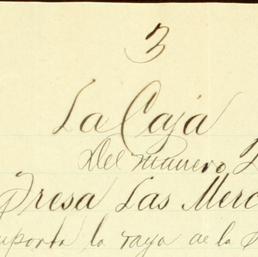 3
La Caja
Del
Presa Las Merc
mporta la raya de la